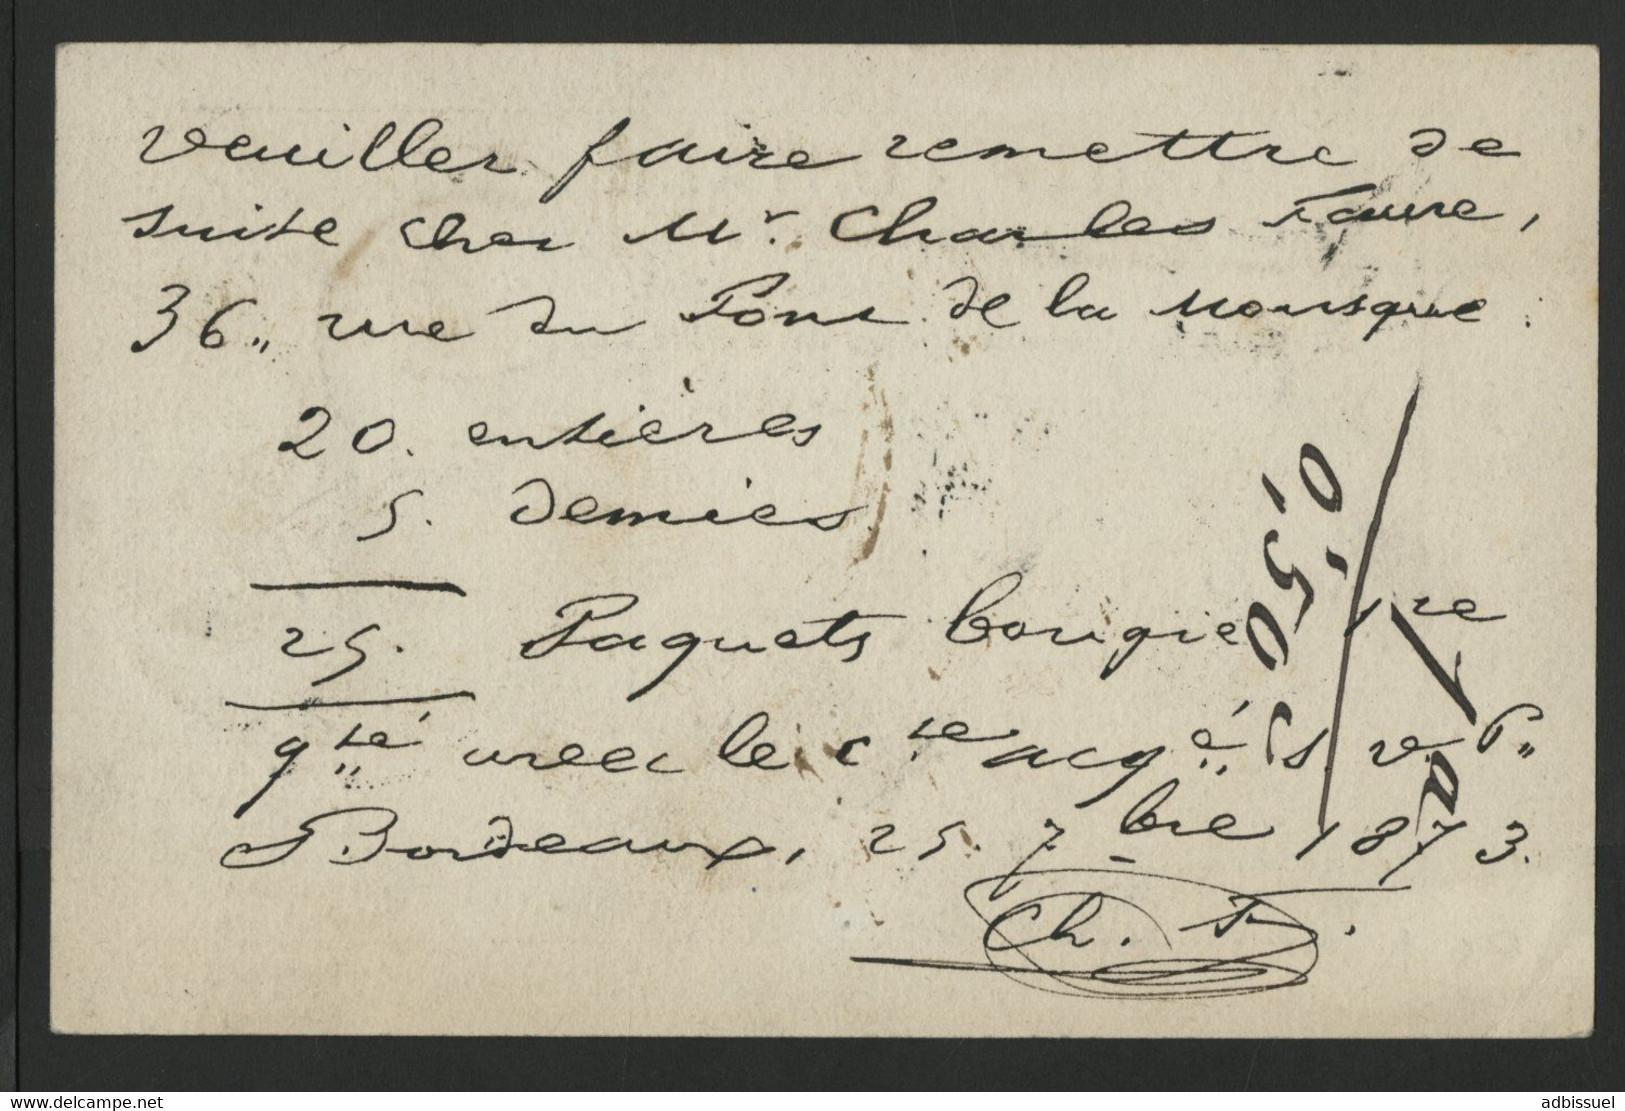 veuiller faire remettre de
suite chez Mr. Charles Faure,
36,, rue du Pont de la Mousque.
20. entières
5. demies
25. Paquets bougie 1re
qté avec le cte acqé s. v. p,,
Bordeaux, 25. 7bre 1873.
Ch. F.
0,50
delcampe.com
adbissuel